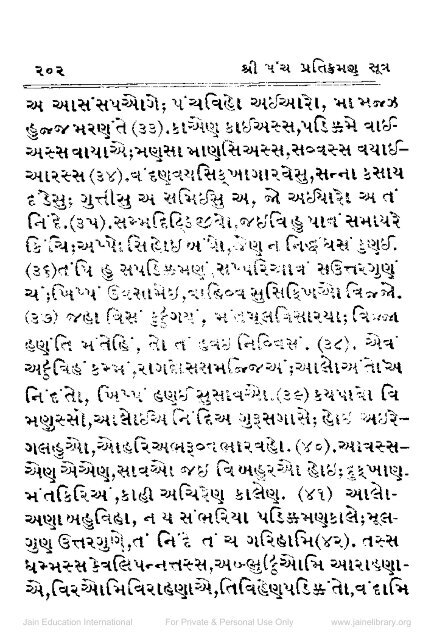 ૨૦૨ શ્રી પંચ પ્રતિક્રમણ સૂત્ર
અ આસંસપઓગે; પંચવિહો અઈઆરો, મા મજ્ઝ
હુજ્જ મરણંતે (૩૩).કાએણ કાઈઅસ્સ,પડિક્કમે વાઈ-
અસ્સ વાયાએ;મણસા માણસિઅસ્સ,સવ્વસ્સ વયાઈ-
આરસ્સ (૩૪).વંદણવયસિક્ખાગારવેસુ,સન્ના કસાય
દંડેસુ; ગુત્તીસુ અ સમિઈસુ અ, જો અઈયારો અ તં
નિંદે.(૩૫).સમ્મદ્દિટ્ઠિ જીવો,જઈવિ હુ પાવં સમાયરે
કિંચિ;અપ્પો સિ હોઈ બંધો,જેણ ન નિદ્ધંધસં કુણઈ.
(૩૬)તંપિ હુ સપડિક્કમણં,સપ્પરિઆવં સઉત્તરગુણં
ચ;ખિપ્પં ઉવસામેઇ,વાહિવ્વ સુસિક્ખિઓ વિજ્જો.
(૩૭) જહા વિસં કુટ્ઠગયં, મંતમૂલવિસારયા; વિજ્જા
હણંતિ મંતેહિં, તો તં હવઇ નિવ્વિસં. (૩૮). એવં
અટ્ઠવિહં કમ્મં,રાગદોસસમજ્જિઅં;આલોઅંતો અ
નિંદંતો, ખિપ્પં હણઈ સુસાવઓ.(૩૯) કયપાવો વિ
મણુસ્સો,આલોઈઅ નિંદિઅ ગુરૂસગાસે; હોઈ અઇરે-
ગલહુઓ,ઓહરિઅભરૂવ્વ ભારવહો. (૪૦).આવસ્સ-
એણ એએણ,સાવઓ જઇ વિ બહુરઓ હોઇ;દુક્ખાણ-
મંતકિરિઅં,કાહી અચિરેણ કાલેણ. (૪૧) આલો-
અણા બહુવિહા, ન ય સંભરિયા પડિક્કમણકાલે;મૂલ-
ગુણ ઉત્તરગુણે,તં નિંદે તં ચ ગરિહામિ(૪૨). તસ્સ
ધમ્મસ્સ કેવલિપન્નત્તસ્સ,અબ્ભુટ્ઠિઓમિ આરાહણા-
એ,વિરઓમિવિરાહણાએ,તિવિહેણપડિક્કંતો,વંદામિ
Jain Education International For Private & Personal Use Only www.jainelibrary.org